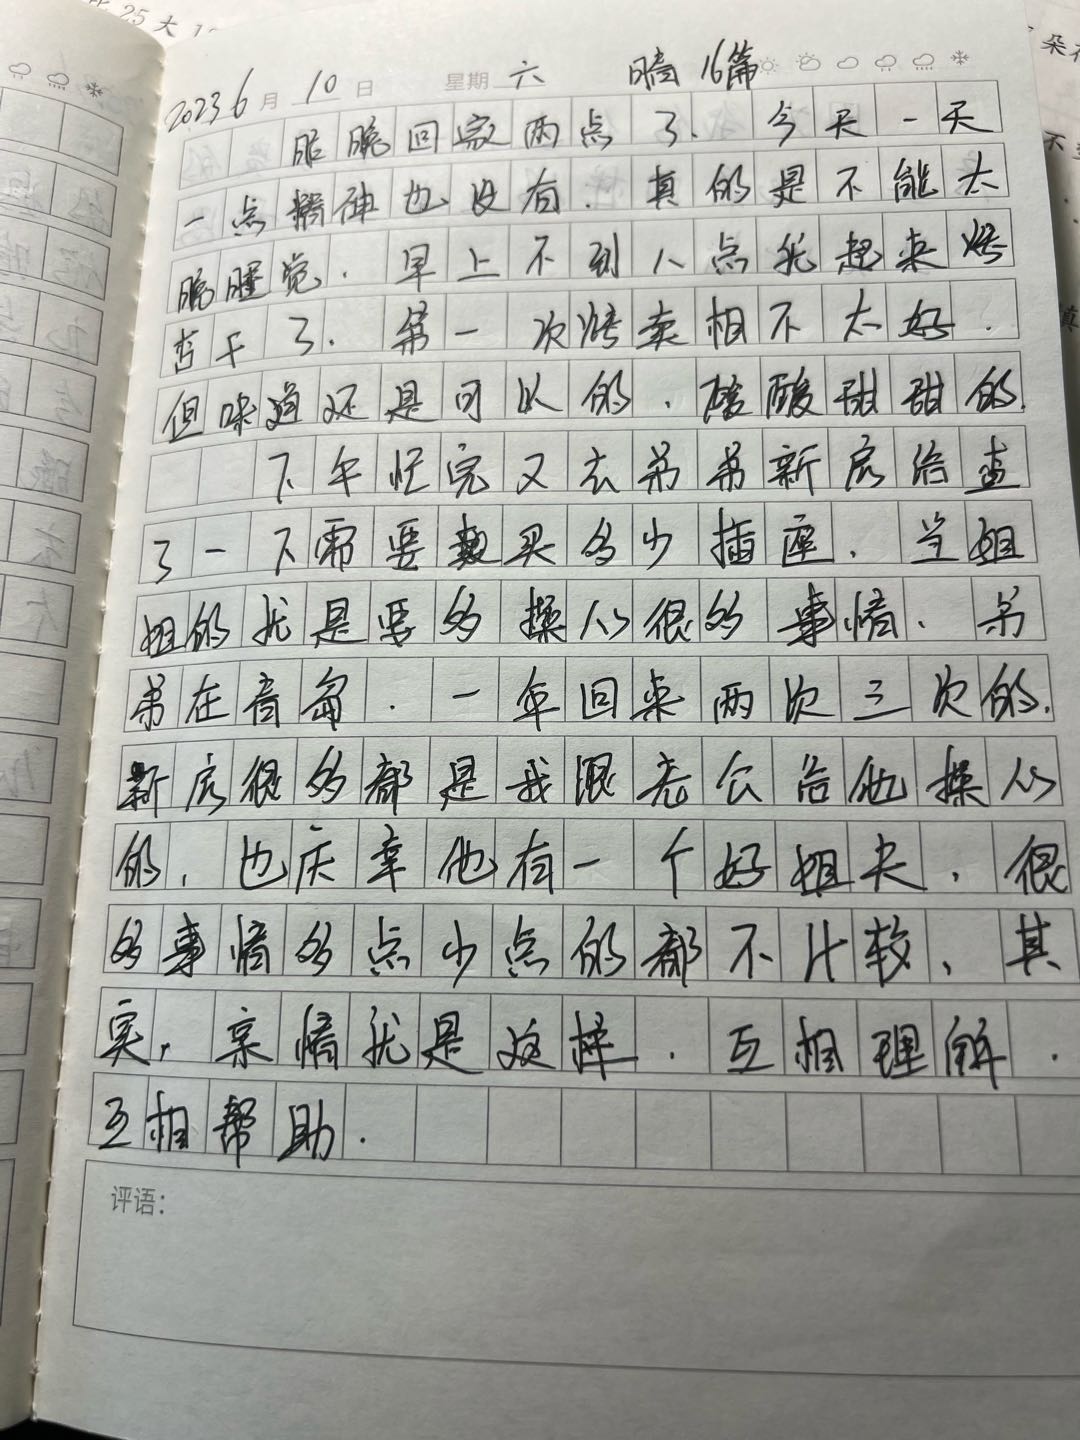 2023 6月10日 星期六 晴 16篇
昨晚回家两点了.今天一天
一点精神也没有.真的是不能太
晚睡觉.早上不到八点我起来烤
了.第一次烤卖相不太好.
但味道还是可以的.酸酸甜甜的.
下午忙完又去弟弟新房给查
了一下需要买多少插座.当姐
姐的就是要多操心很多事情.弟
弟在青岛.一年回来两次三次的.
新房很多都是我跟老公给他操心
的,也庆幸他有一个好姐夫,很
多事情多点少点的都不计较,其
实,亲情就是这样.互相理解.
互相帮助.
评语: